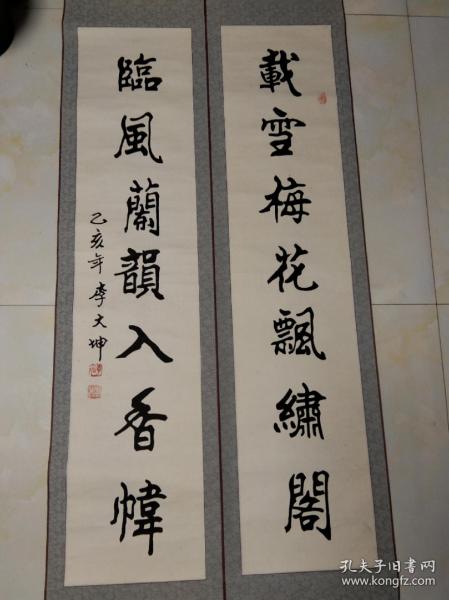 載雪梅花飄繡閣
臨風蘭韻入香幃
乙亥年 李大坤
孔夫子旧书网
www.kongfz.com